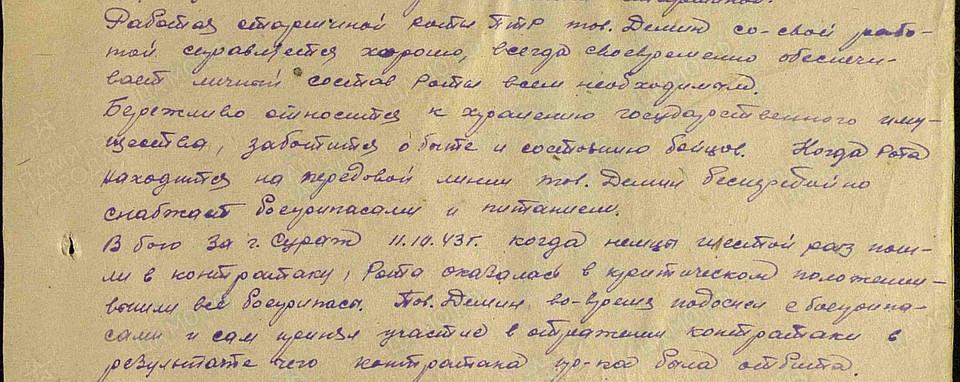 Работая старшиной роты ПТР тов. Демин со-своей рабо-
той справляется хорошо, всегда своевременно обеспечи-
вает личный состав роты всем необходимым.
Бережливо относится к хранению государственного иму-
щества, заботится о быте и состоянию бойцов. Когда рота
находится на передовой линии тов. Демин бесперебойно
снабжает боеприпасами и питанием.
В бою за г. Сураж 11.10.43г. когда немцы шестой раз пош-
ли в контратаку, рота оказалась в критическом положении-
вышли все боеприпасы. Тов. Демин во-время подоспел с боеприпа-
сами и сам принял участие в отражении контратаки в
результате чего контратака пр-ка была отбита.